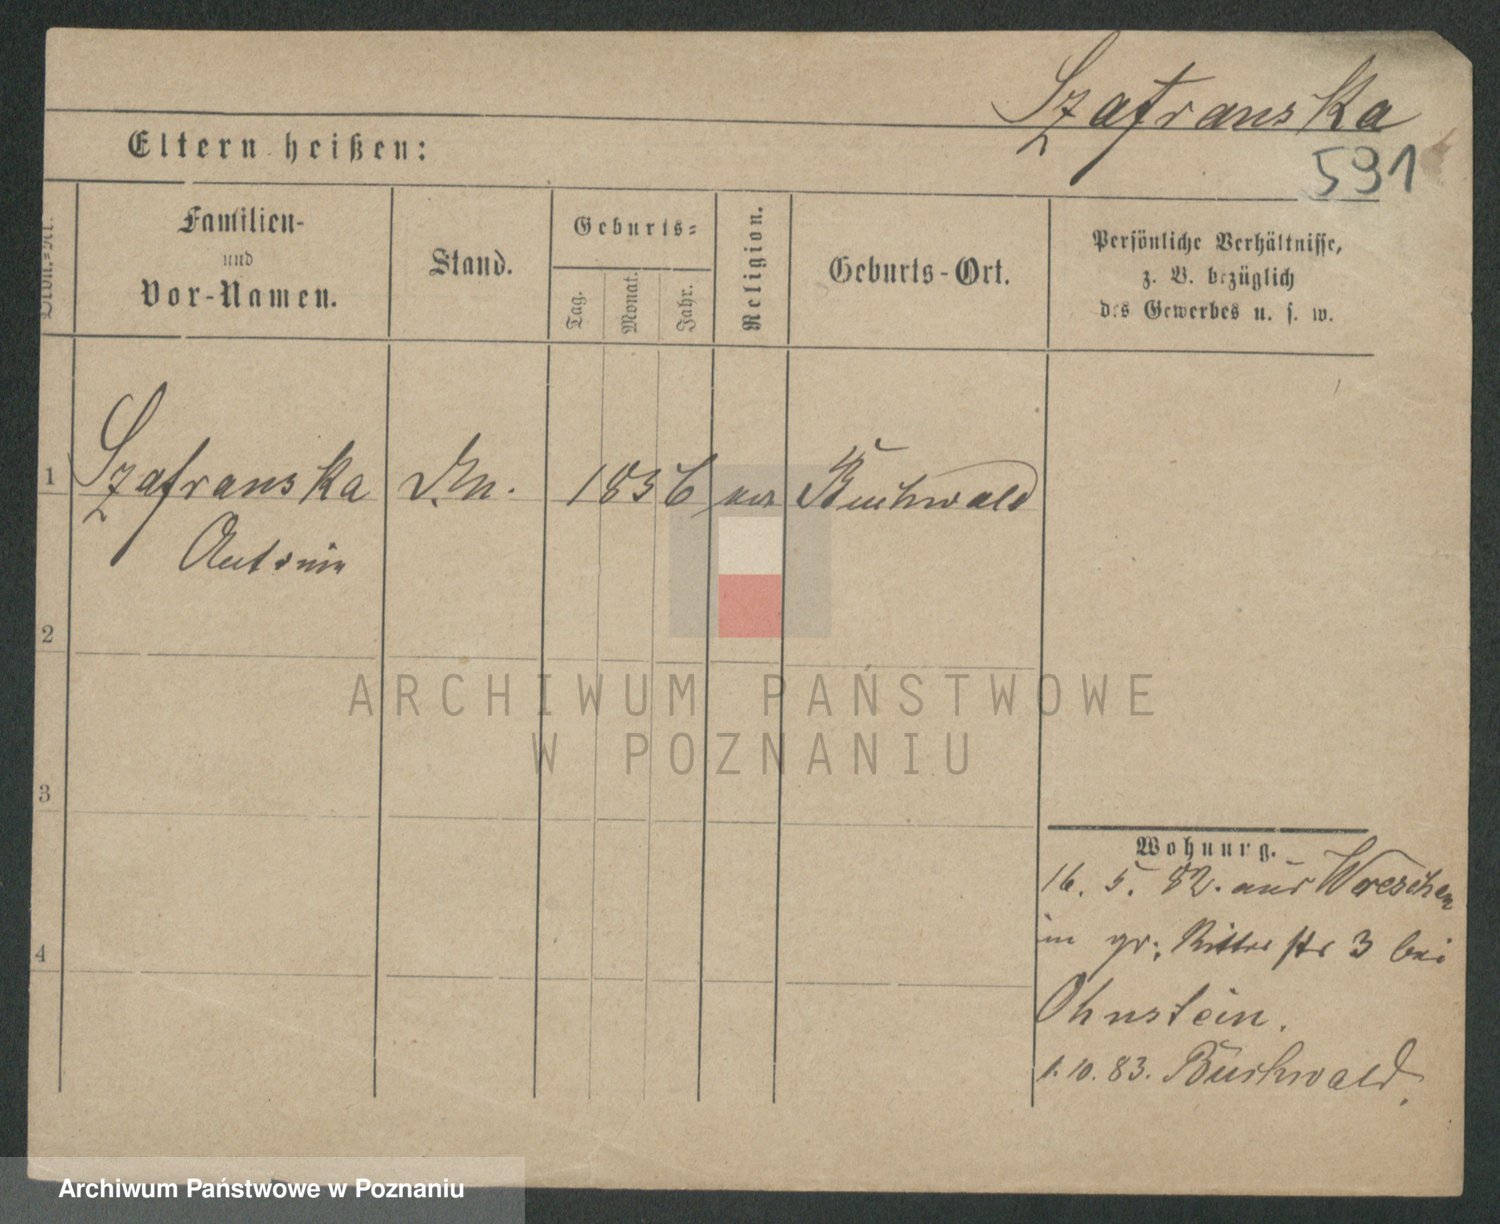 Szafranska
591
Eltern heißen:
Ordn.-Nr.
Familien-
und
Vor-Namen.
Stand.
Geburts-
Tag.
Monat.
Jahr.
Religion.
Geburts-Ort.
Persönliche Verhältnisse,
z. B. bezüglich
des Gewerbes u. s. w.
1 Szafranska 1836 Buchwald
Antonin
2
3
4
ARCHIWUM PAŃSTWOWE
W POZNANIU
Wohnung.
16. 5. 82. aus Wreschen
in gr. Ritterstr 3 bei
Ohnstein.
1. 10. 83. Buchwald.
Archiwum Państwowe w Poznaniu